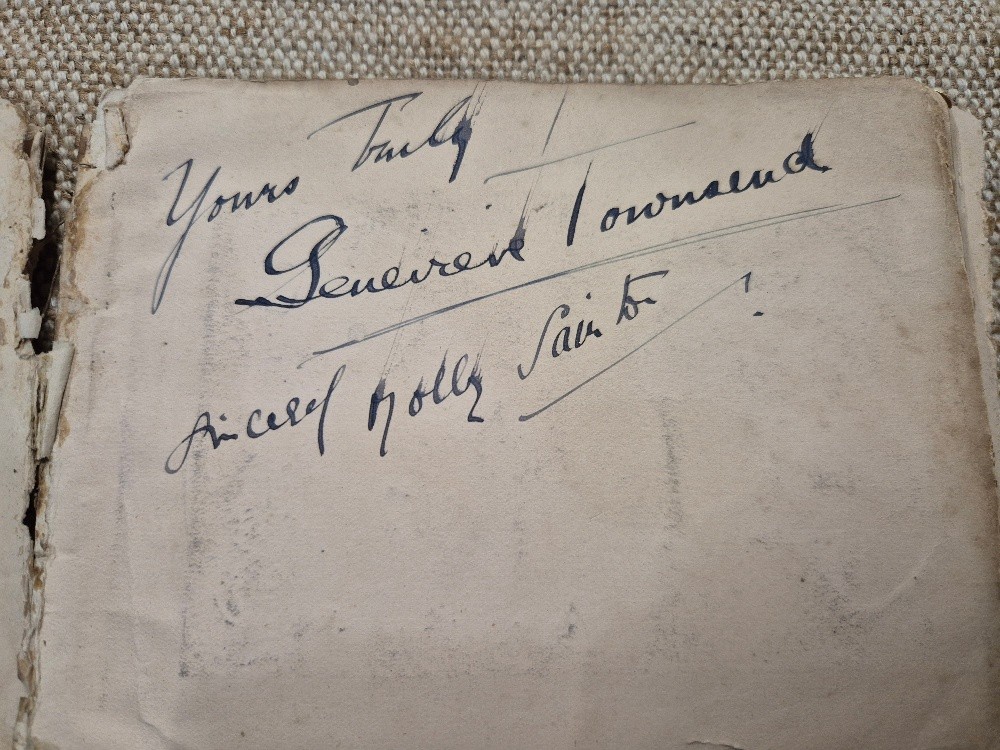 Yours Truly
Genevieve Townsend
Sincerely Molly